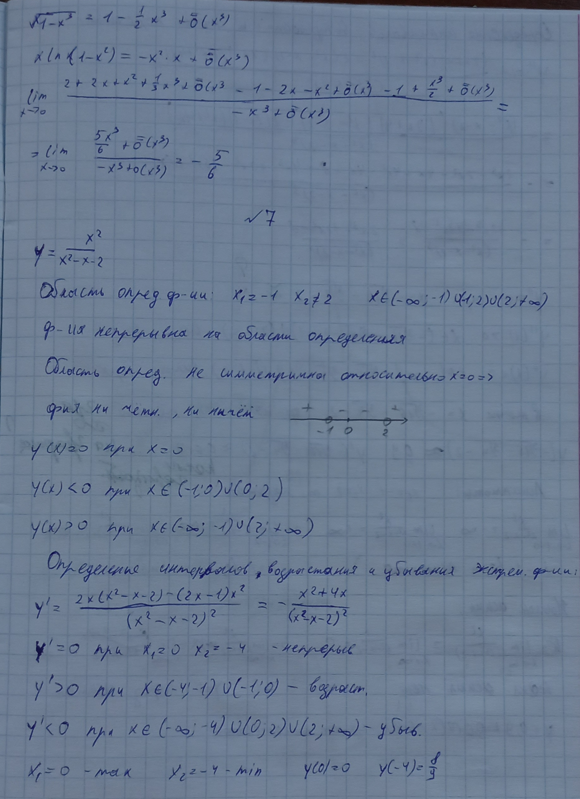 √1-x³ = 1 - 1/2 x³ + ō(x³)
x ln(1-x²) = -x²·x + ō(x³)
lim x→0 (2 + 2x + x² + 1/3 x³ + ō(x³ - 1 - 2x - x² + ō(x³) - 1 + x³/2 + ō(x³)) / (-x³ + ō(x³)) =
= lim x→0 (5x³/6 + ō(x³)) / (-x³ + ō(x³)) = - 5/6
√7
y = x² / (x²-x-2)
Область опред ф-ии: x₁ = -1 x₂ ≠ 2 x∈(-∞; -1)∪(-1; 2)∪(2; +∞)
ф-ия непрерывна на области определения
Область опред. не симметрична относительно x=0 =>
фия ни четн., ни нечёт
+ - - +
-1 0 2
y(x)=0 при x=0
y(x)<0 при x∈(-1; 0)∪(0; 2)
y(x)>0 при x∈(-∞; -1)∪(2; +∞)
Определение интервалов, возрастания и убывания экстрем. ф-ии:
y' = (2x(x²-x-2) - (2x-1)x²) / (x²-x-2)² = - (x²+4x) / (x²-x-2)²
y'=0 при x₁=0 x₂=-4 - непрерыв
y'>0 при x∈(-4; -1)∪(-1; 0) - возраст.
y'<0 при x∈(-∞; -4)∪(0; 2)∪(2; +∞) - убыв.
x₁=0 - max x₂=-4 - min y(0)=0 y(-4)= 8/9